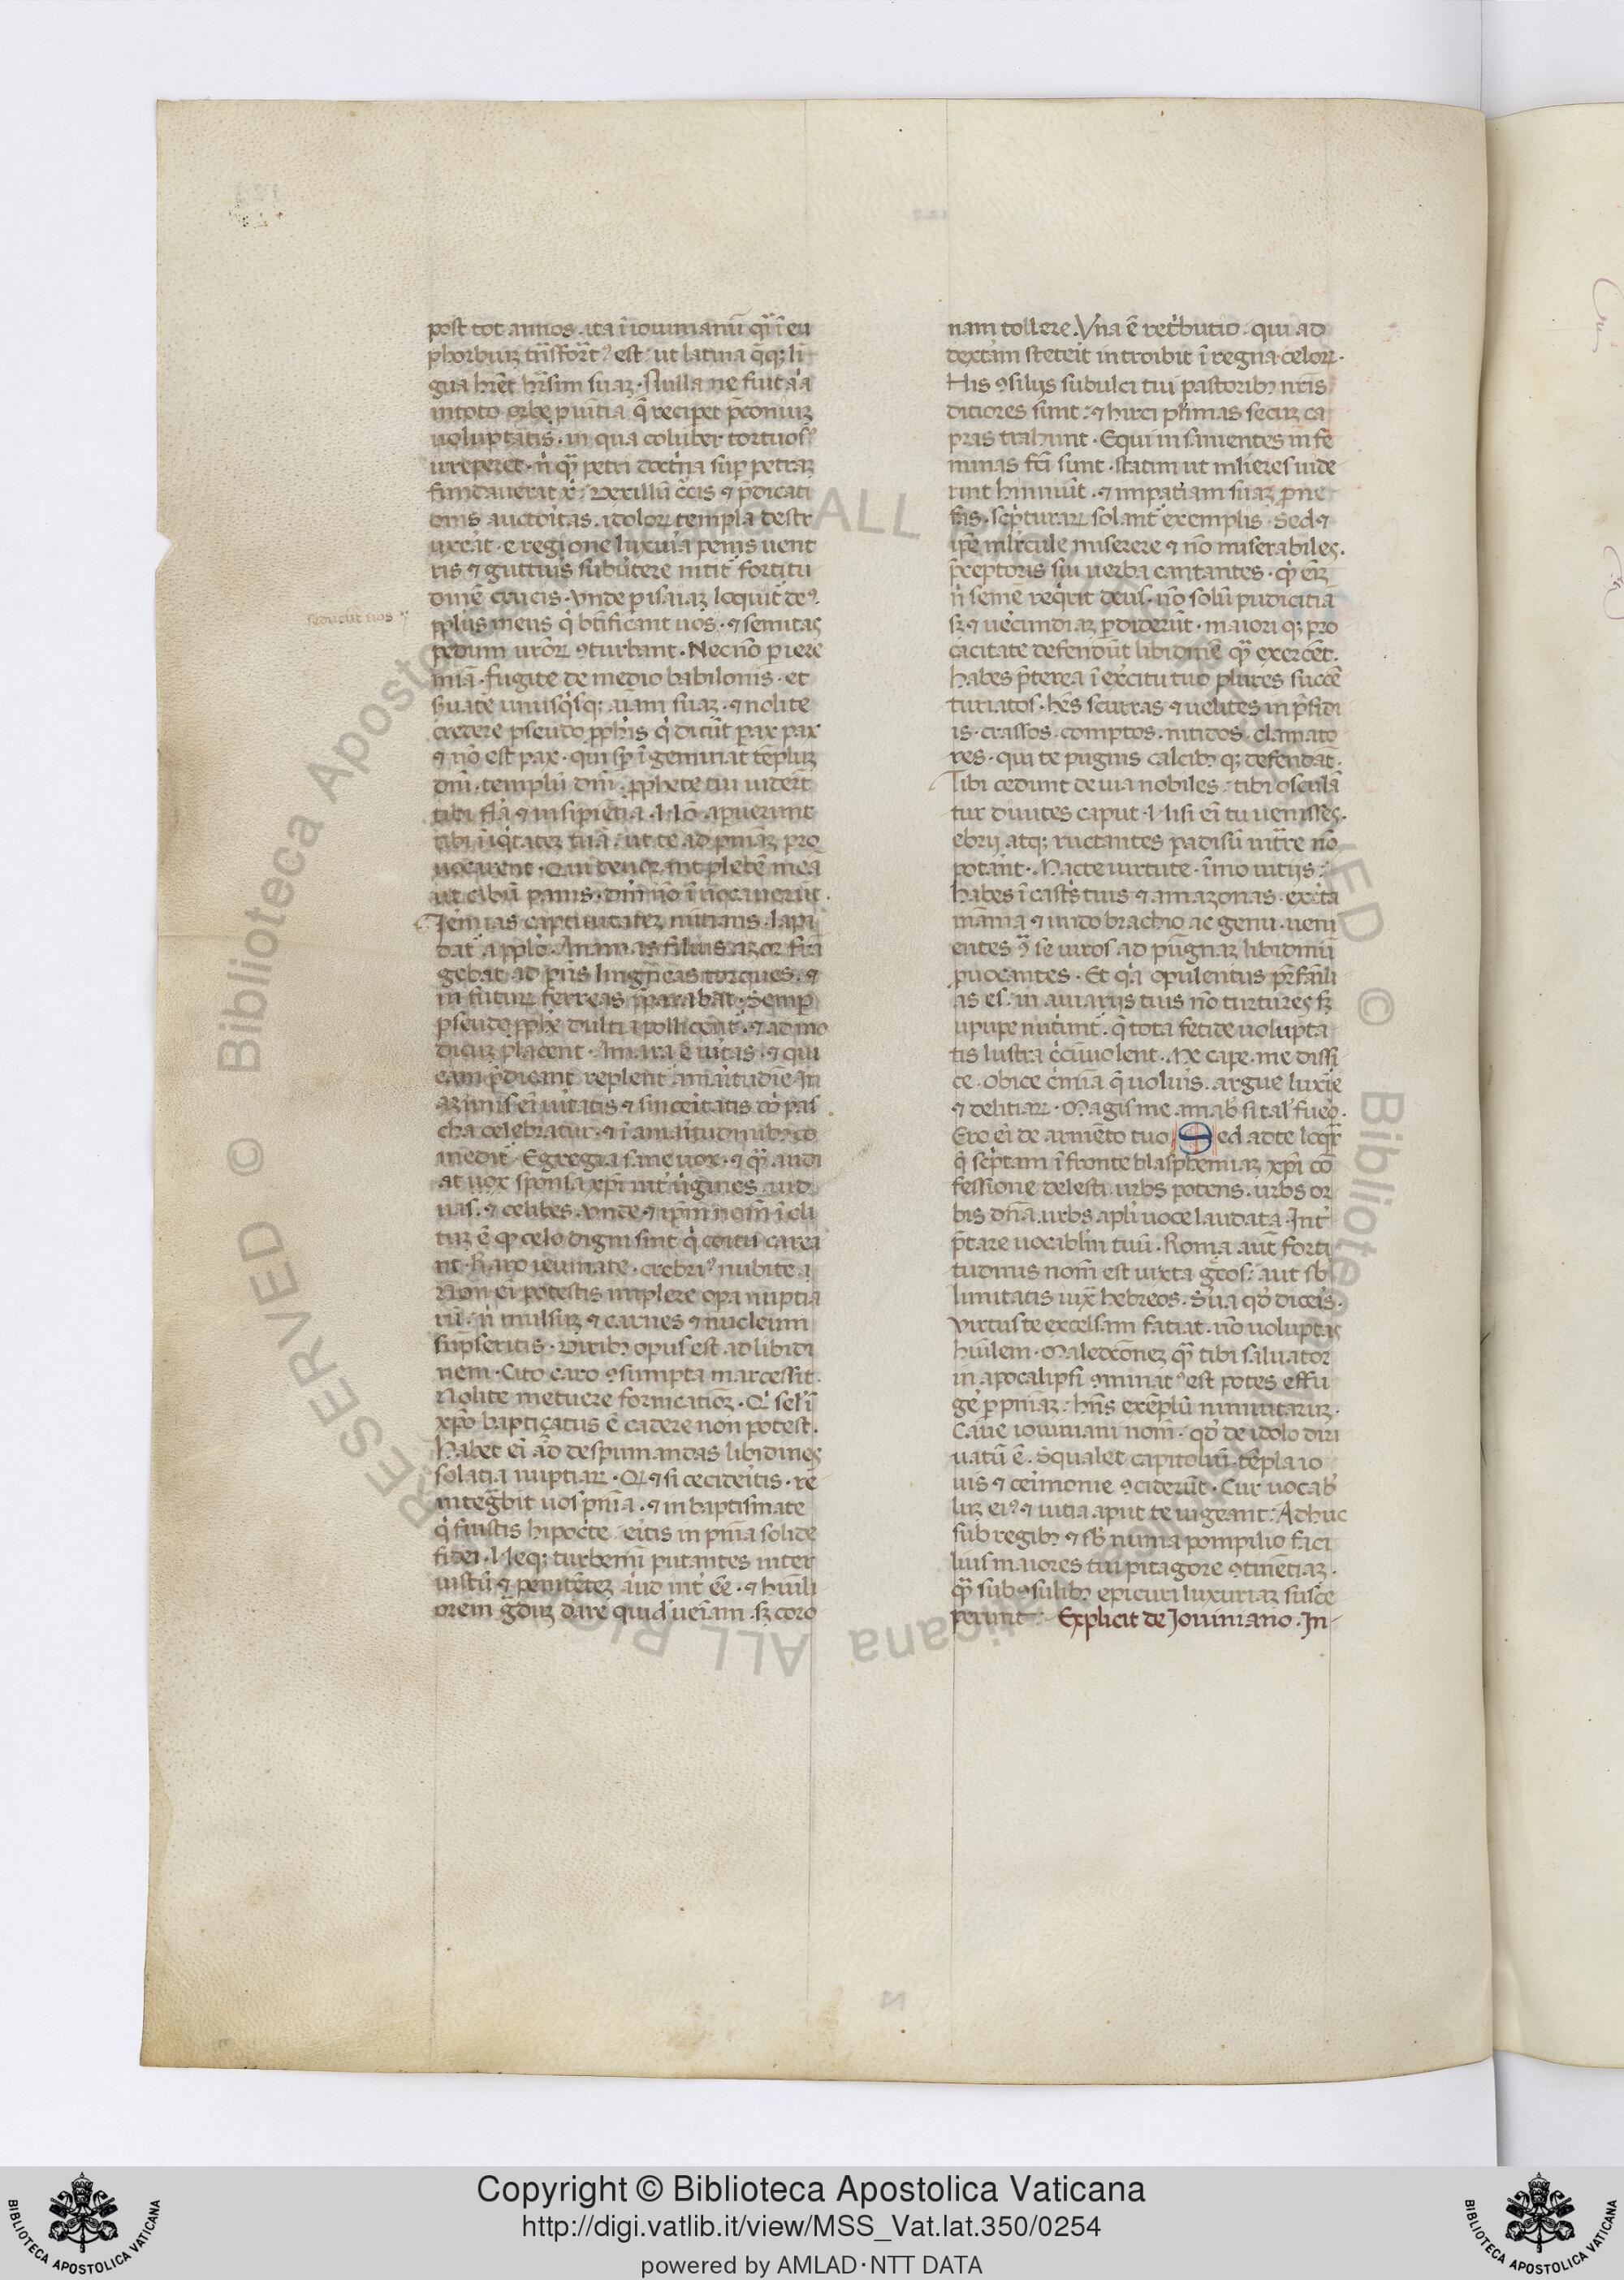 post tot annos. ita ĩ iouinianũ qͣ ĩ eu
phorbiuꝫ trãsfort᷒ est. ut latina q̃qꝫ li
gua hrẽt hr̃sim suaꝫ. Nulla ne fuit aͥa
intoto orbe ꝓuītia q̃ recipet p̃coniuꝫ
uoluptatis. in qua coluber tortuosꝰ
irreperet. nͥ qͣ petri doctͥna suꝑ petraꝫ
fundauerat xͥ. Vexillũ cͥcis ⁊ p̃dicati
onis auctoͥtas. idoloꝝ templa destr
uxeat. e regione luxuͥa penis uent
ris ⁊ gutturis subutere nitit᷒ fortitu
dinẽ crucis. vnde ꝑ isaiaꝫ loquit᷒ deꝰ.
pplus meus qͥ btificant uos. ⁊ semitas
seducũt uos
pedum uroꝝ ꝯturbant. Necnõ ꝑ iere
miã. fugite de medio babilonis. et
suate unusqͥsqꝫ aĩam suaꝫ. ⁊ nolite
credere pseudo ꝓphis qͥ dicũt pax pax
⁊ nõ est pax. qui sꝑ ĩgeminat tẽpluꝫ
dnĩ. templũ dnĩ. ꝓphete tui uiderũt
tibi fl̃a ⁊ insipiẽtia. Nõ aperuerunt
tibi ĩiqͥtateꝫ tuã. ut te ad pniãꝫ pro
uocarent. Qui deuorant plebẽ meã
ut cibũ panis. dnĩ nõ ĩuocauerũt.
Jeͥmias captiuitateꝫ nũtians. lapi
dat᷒ a pplo. Ananias filius azor frã
gebat ad pñs lingneas torques. ⁊
in futuꝝ ferreas p̃parabat. Semꝑ
pseudo ꝓphe dulcia pollicent᷒. ⁊ ad mo
dicuꝫ placent. Amara ẽ uͥitas. ⁊ qui
eam p̃dicant replent᷒ amaͥtudiẽ. In
aꝫimis eĩ uͥitatis ⁊ sinceͥtatis dõ pas
cha celebratur. ⁊ ĩ amaͥtudinibꝫ co
medit᷒. Egregia sane uox. ⁊ qͣ audi
at uox sponsa xp̃i int᷒ uͥgines uid
uas. ⁊ celibes. vnde ⁊ ip̃m nom̃ ĩ cli
tuꝫ ẽ qꝫ celo digni sint qͥ coitu carea
nt. Raro ieiunate. crebriꝰ nubite
Non eĩ potestis implere oꝑa nuptia
rũ. nͥ mulsuꝫ ⁊ carnes ⁊ nucleum
sũpseritis. Viribꝫ opus est ad libidi
nem. Cito caro ꝯsumpta marcessit.
Nolite metuere fornicatiõꝫ. Qͥ sel ĩ
xp̃o baptiçatus ẽ cadere non potest.
Habet eĩ ad despumandas libidines
solatia nuptiaꝝ. Qꝫ ⁊ si cecideͥtis. re
integͣbit uos pnĩa. ⁊ in baptismate
qͥ fuistis hipocͥte. eͥtis in pnĩa solide
fidei. Neqꝫ turbemĩ putantes inter
iustũ ⁊ penitẽteꝫ aͥud int᷒ ẽe. ⁊ huĩli
orem gͣduꝫ dare quidẽ ueĩam. sꝫ coro
nam tollere. Vna ẽ ret̾butio. qui ad
dextam steteͥt introibit ĩ regna celoꝝ.
His ꝯsilijs subulci tui pastoribꝫ nr̃is
ditiores sunt. ⁊ hirci plͥmas secuꝫ ca
pras trahunt. Equi in saniẽntes in fe
minas fcĩ sunt. statim ut mlieres uide
rint hinniũt. ⁊ impatiam suaꝫ ꝓ ne
fas. scpͥturaꝝ solant᷒ exemplis. Sed ⁊
ip̃e mlͥrcule miserere ⁊ nõ miserabiles.
p̃ceptoris sui uerba cantantes. qꝫ eĩꝫ
nͥ semẽ reqͥrit deus. nõ solũ pudicitiã
sꝫ ⁊ uecundiaꝫ ꝑdiderũt. maiori qꝫ pro
cacitate defendũt libidinẽ qͣ exercẽt.
habes p̃terea ĩ exercitu tuo plures succẽ
turiatos. hẽs scurras ⁊ uelites in p̃sidi
is. crassos. comptos. nitidos. clamato
res. qui te pugnis calcibꝫ qꝫ defendãt.
Tibi cedunt de uia nobiles. tibi osculã
tur diuites caput. Nisi eĩ tu uenisses.
ebrij atqꝫ ructantes padisũ intͣre nõ
potant. Macte uirtute. ĩmo uitijs.
habes ĩ castͥs tuis ⁊ amazonas. exẽta
mãma ⁊ nudo brachio ac genu. ueni
entes ꝯͣ se uiros ad pũgnaꝫ libidinũ
ꝓuocantes. Et qͥa opulentus pr̃ fãili
as es. in auiarijs tuis nõ turtures sꝫ
upupe nutͥunt᷒. q̃ tota fetide uolupta
tis lustra cͥcũuolent. Me cape. me dissi
ce. obice cͥmĩa q̃ uoluͥs. argue luxͥie
⁊ delitiaꝝ. Magis me amabͥ si tal᷒ fueͦ.
Ero eĩ de armẽto tuo. Sed ad te loqͣr
qͥ scpͥtam ĩ fronte blasphemiaꝫ xp̃i cõ
fessione delesti. urbs potens. urbs or
bis dn̄a. urbs apl̃i uoce laudata. Int᷒
p̃tare uocablm̃ tuũ. Roma aut forti
tudinis nom̃ est iuxta gͣcos. aut sb
limitatis iuxͣ hebreos. Sua qd̃ diceͥs.
virtus te excelsam faciat. nõ uoluptas
huĩlem. Maledc̃oneꝫ qͣ tibi saluator
in apocalipsi ꝯminatꝰ est potes effu
ge ꝑ pniaꝫ. hn̄s exẽplũ niniuitaruꝫ.
Caue iouiniani nom̃. qd̃ de idolo diri
uatũ ẽ. Squalet capitoliũ. tẽpla io
uis ⁊ cerĩmonie ꝯciderũt. Cur uocab
luꝫ eiꝰ ⁊ uitia aput te uigeant. Adhuc
sub regibꝫ ⁊ sb numa pompilio faci
lius maiores tui pitagore ꝯtinẽtiaꝫ.
qͣ sub ꝯsulibꝫ epicuri luxuriaꝫ susce
perunt. Explicit de Jouiniano. In
Copyright © Biblioteca Apostolica Vaticana
http://digi.vatlib.it/view/MSS_Vat.lat.350/0254
powered by AMLAD·NTT DATA